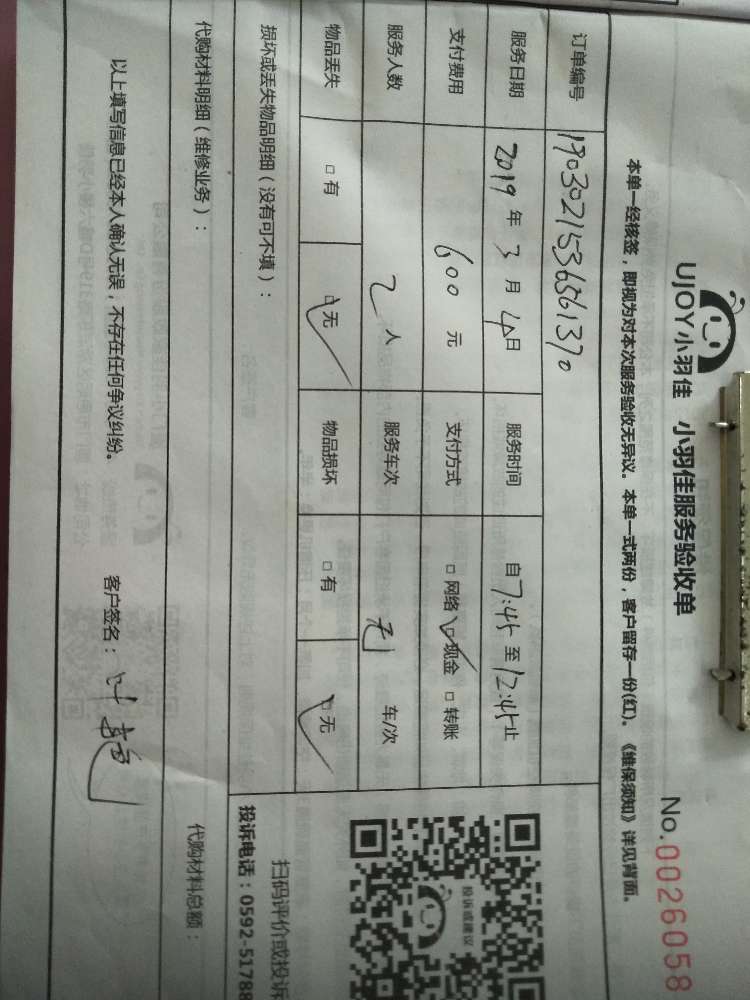 UJOY小羽佳 小羽佳服务验收单 No.0026058
本单一经核签，即视为对本次服务验收无异议。本单一式两份，客户留存一份(红)。《维保须知》详见背面。
订单编号 1903021536561370
服务日期 2019年3月4日 服务时间 自7:45至12:45止
支付费用 600元 支付方式 □网络 □现金 □转账
服务人数 2人 服务车次 无 车/次
物品丢失 □有 □无 物品损坏 □有 □无
投诉或建议
扫码评价或投诉
损坏或丢失物品明细（没有可不填）：
投诉电话：0592-51788
代购材料明细（维修业务）： 代购材料总额：
以上填写信息已经本人确认无误，不存在任何争议纠纷。 客户签名：